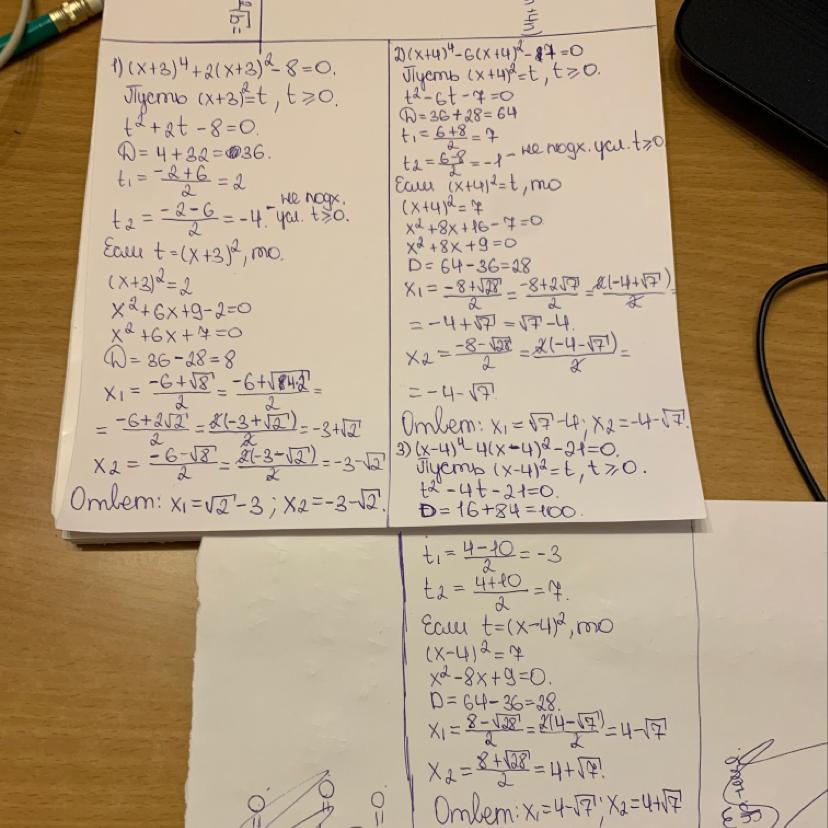 1) (x+3)⁴+2(x+3)²-8=0.
Пусть (x+3)²=t, t≥0.
t²+2t-8=0.
D=4+32=36.
t₁=(-2+6)/2=2
t₂=(-2-6)/2=-4. - не подх. усл. t≥0.
Если t=(x+3)², то.
(x+3)²=2
x²+6x+9-2=0
x²+6x+7=0
D=36-28=8
x₁=(-6+√8)/2=(-6+√4·2)/2=
=(-6+2√2)/2=2(-3+√2)/2=-3+√2
x₂=(-6-√8)/2=2(-3-√2)/2=-3-√2
Ответ: x₁=√2-3; x₂=-3-√2.
2) (x+4)⁴-6(x+4)²-7=0
Пусть (x+4)²=t, t≥0.
t²-6t-7=0
D=36+28=64
t₁=(6+8)/2=7
t₂=(6-8)/2=-1 - не подх. усл. t≥0
Если (x+4)²=t, то
(x+4)²=7
x²+8x+16-7=0.
x²+8x+9=0
D=64-36=28
x₁=(-8+√28)/2=(-8+2√7)/2=2(-4+√7)/2=
=-4+√7=√7-4.
x₂=(-8-√28)/2=2(-4-√7)/2=
=-4-√7.
Ответ: x₁=√7-4; x₂=-4-√7.
3) (x-4)⁴-4(x-4)²-21=0.
Пусть (x-4)²=t, t≥0.
t²-4t-21=0.
D=16+84=100.
t₁=(4-10)/2=-3
t₂=(4+10)/2=7.
Если t=(x-4)², то
(x-4)²=7
x²-8x+9=0.
D=64-36=28.
x₁=(8-√28)/2=2(4-√7)/2=4-√7
x₂=(8+√28)/2=4+√7.
Ответ: x₁=4-√7; x₂=4+√7